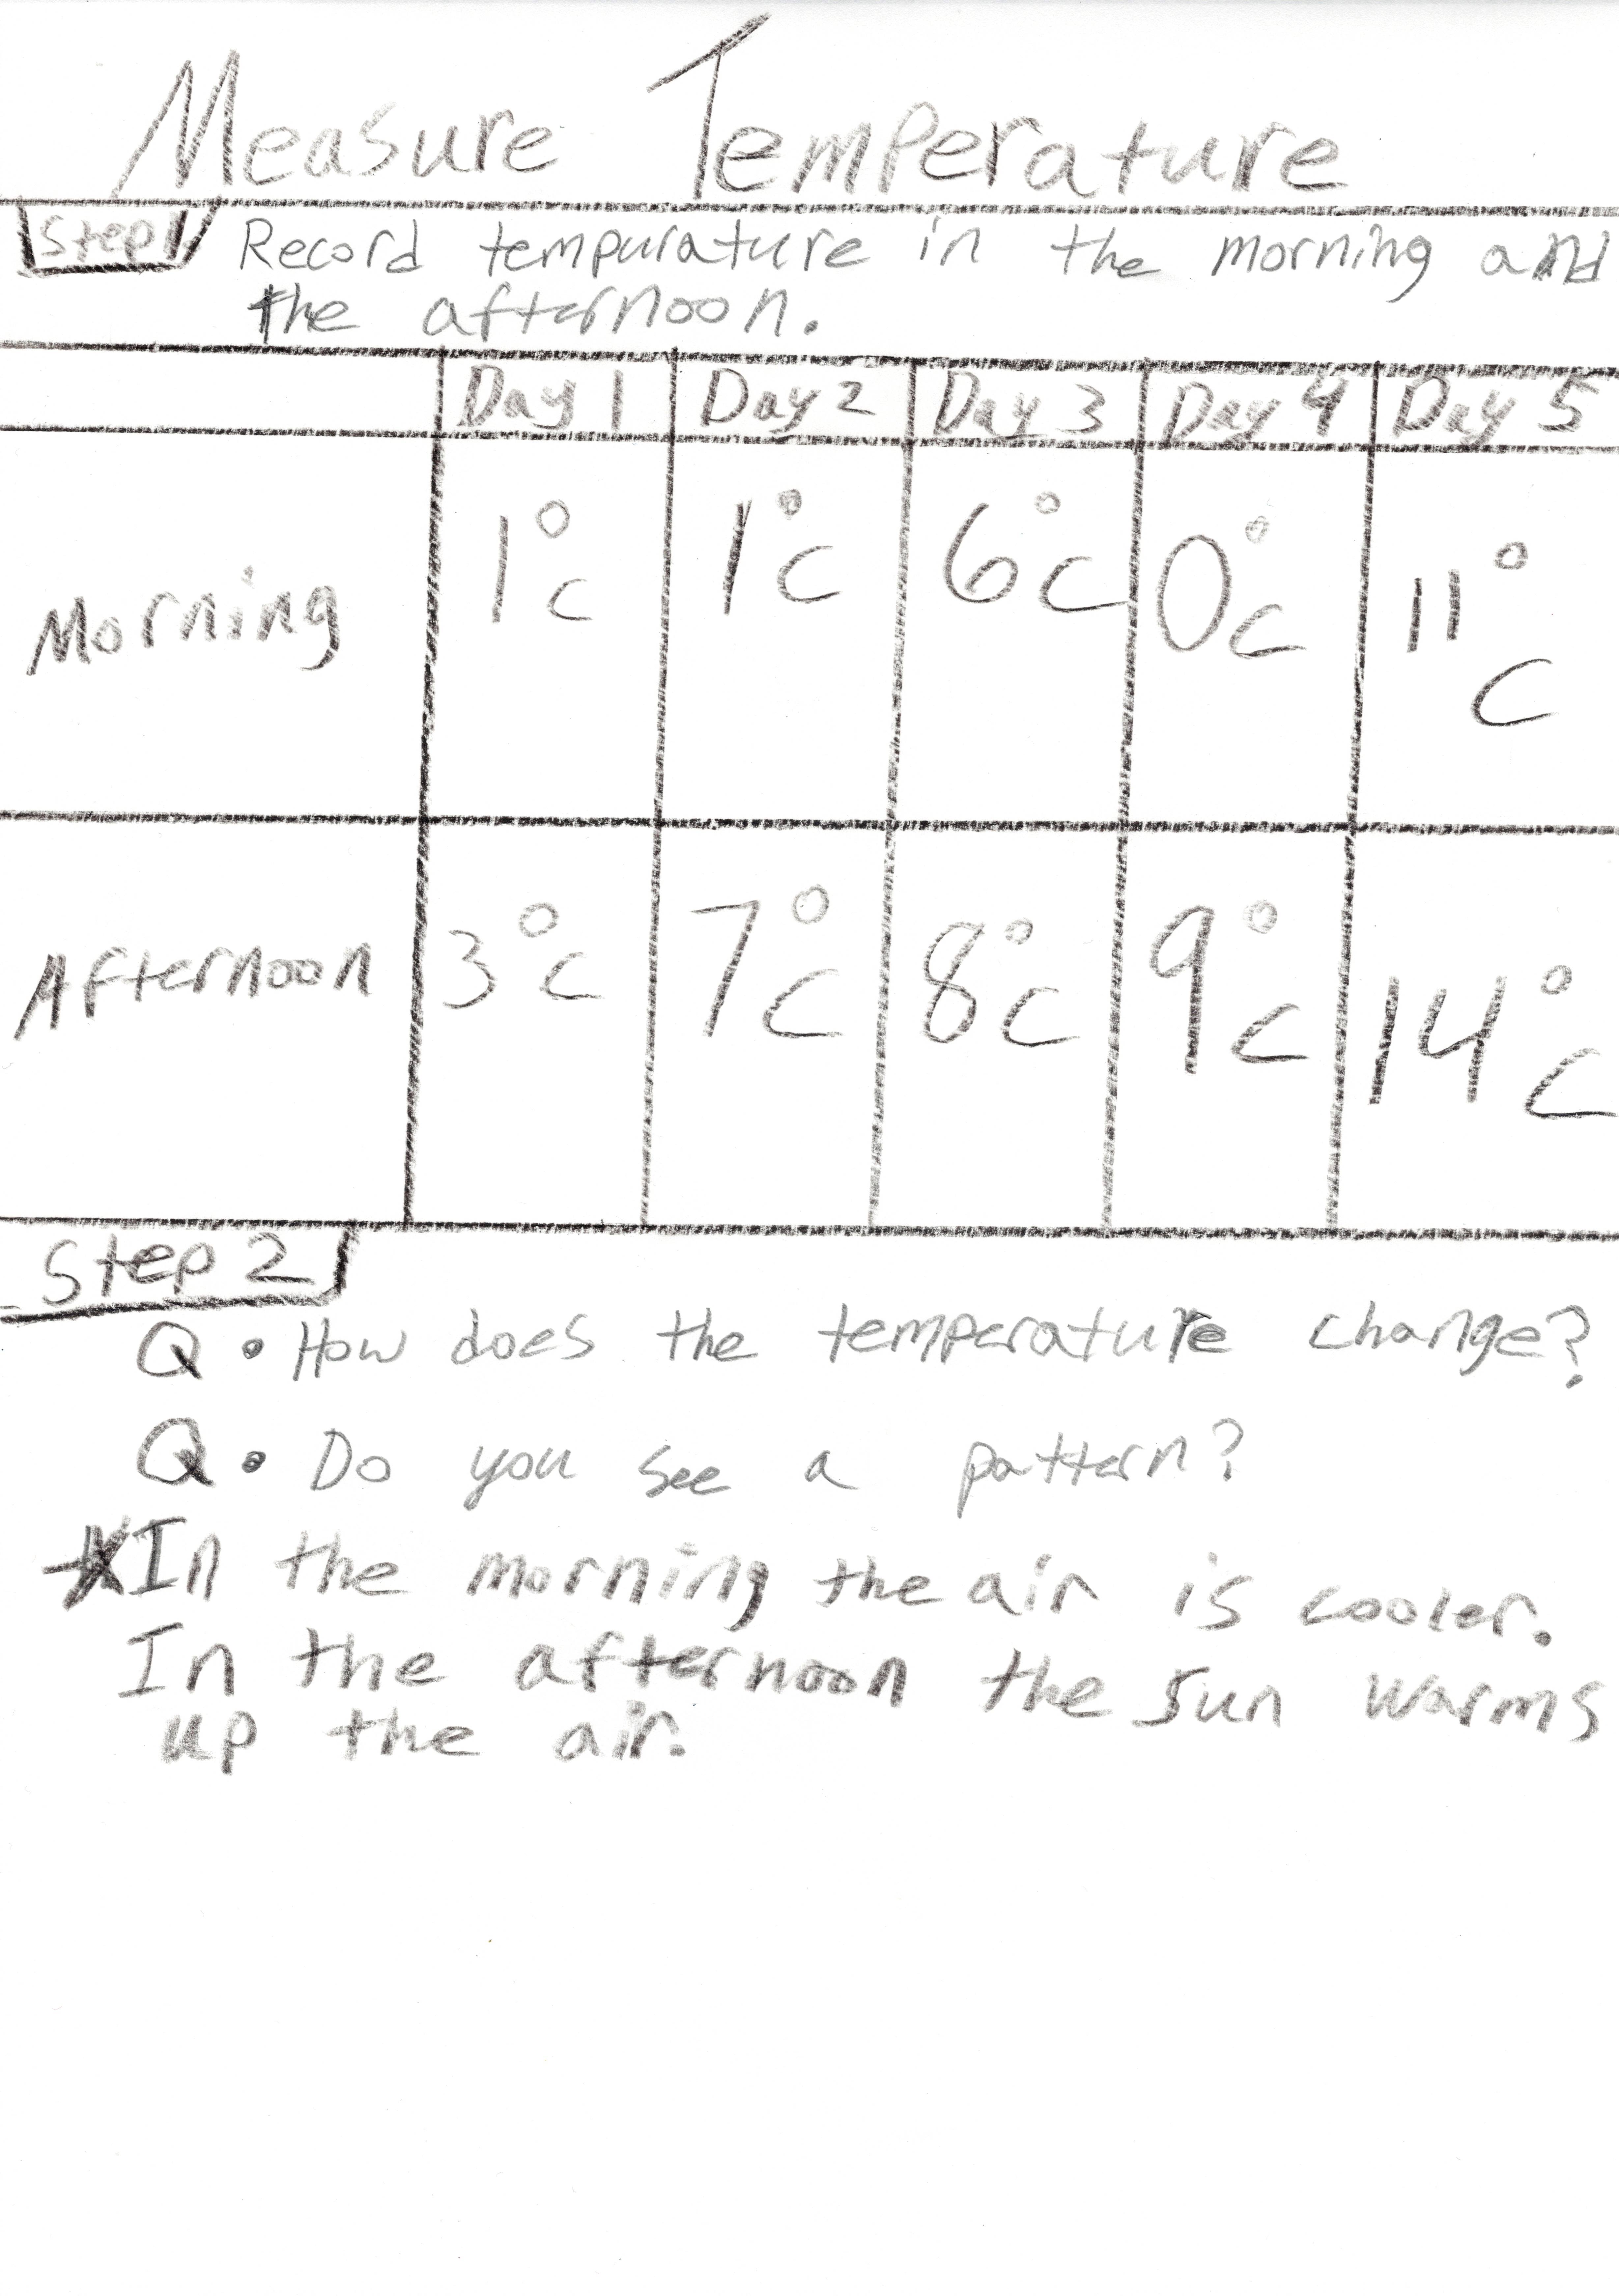 Measure Temperature
Step 1 Record tempurature in the morning and
the afternoon.
Day 1 Day 2 Day 3 Day 4 Day 5
Morning 1°C 1°C 6°C 0°C 11°C
Afternoon 3°C 7°C 8°C 9°C 14°C
Step 2
Q • How does the temperature change?
Q • Do you see a pattern?
*In the morning the air is cooler.
In the afternoon the sun warms
up the air.